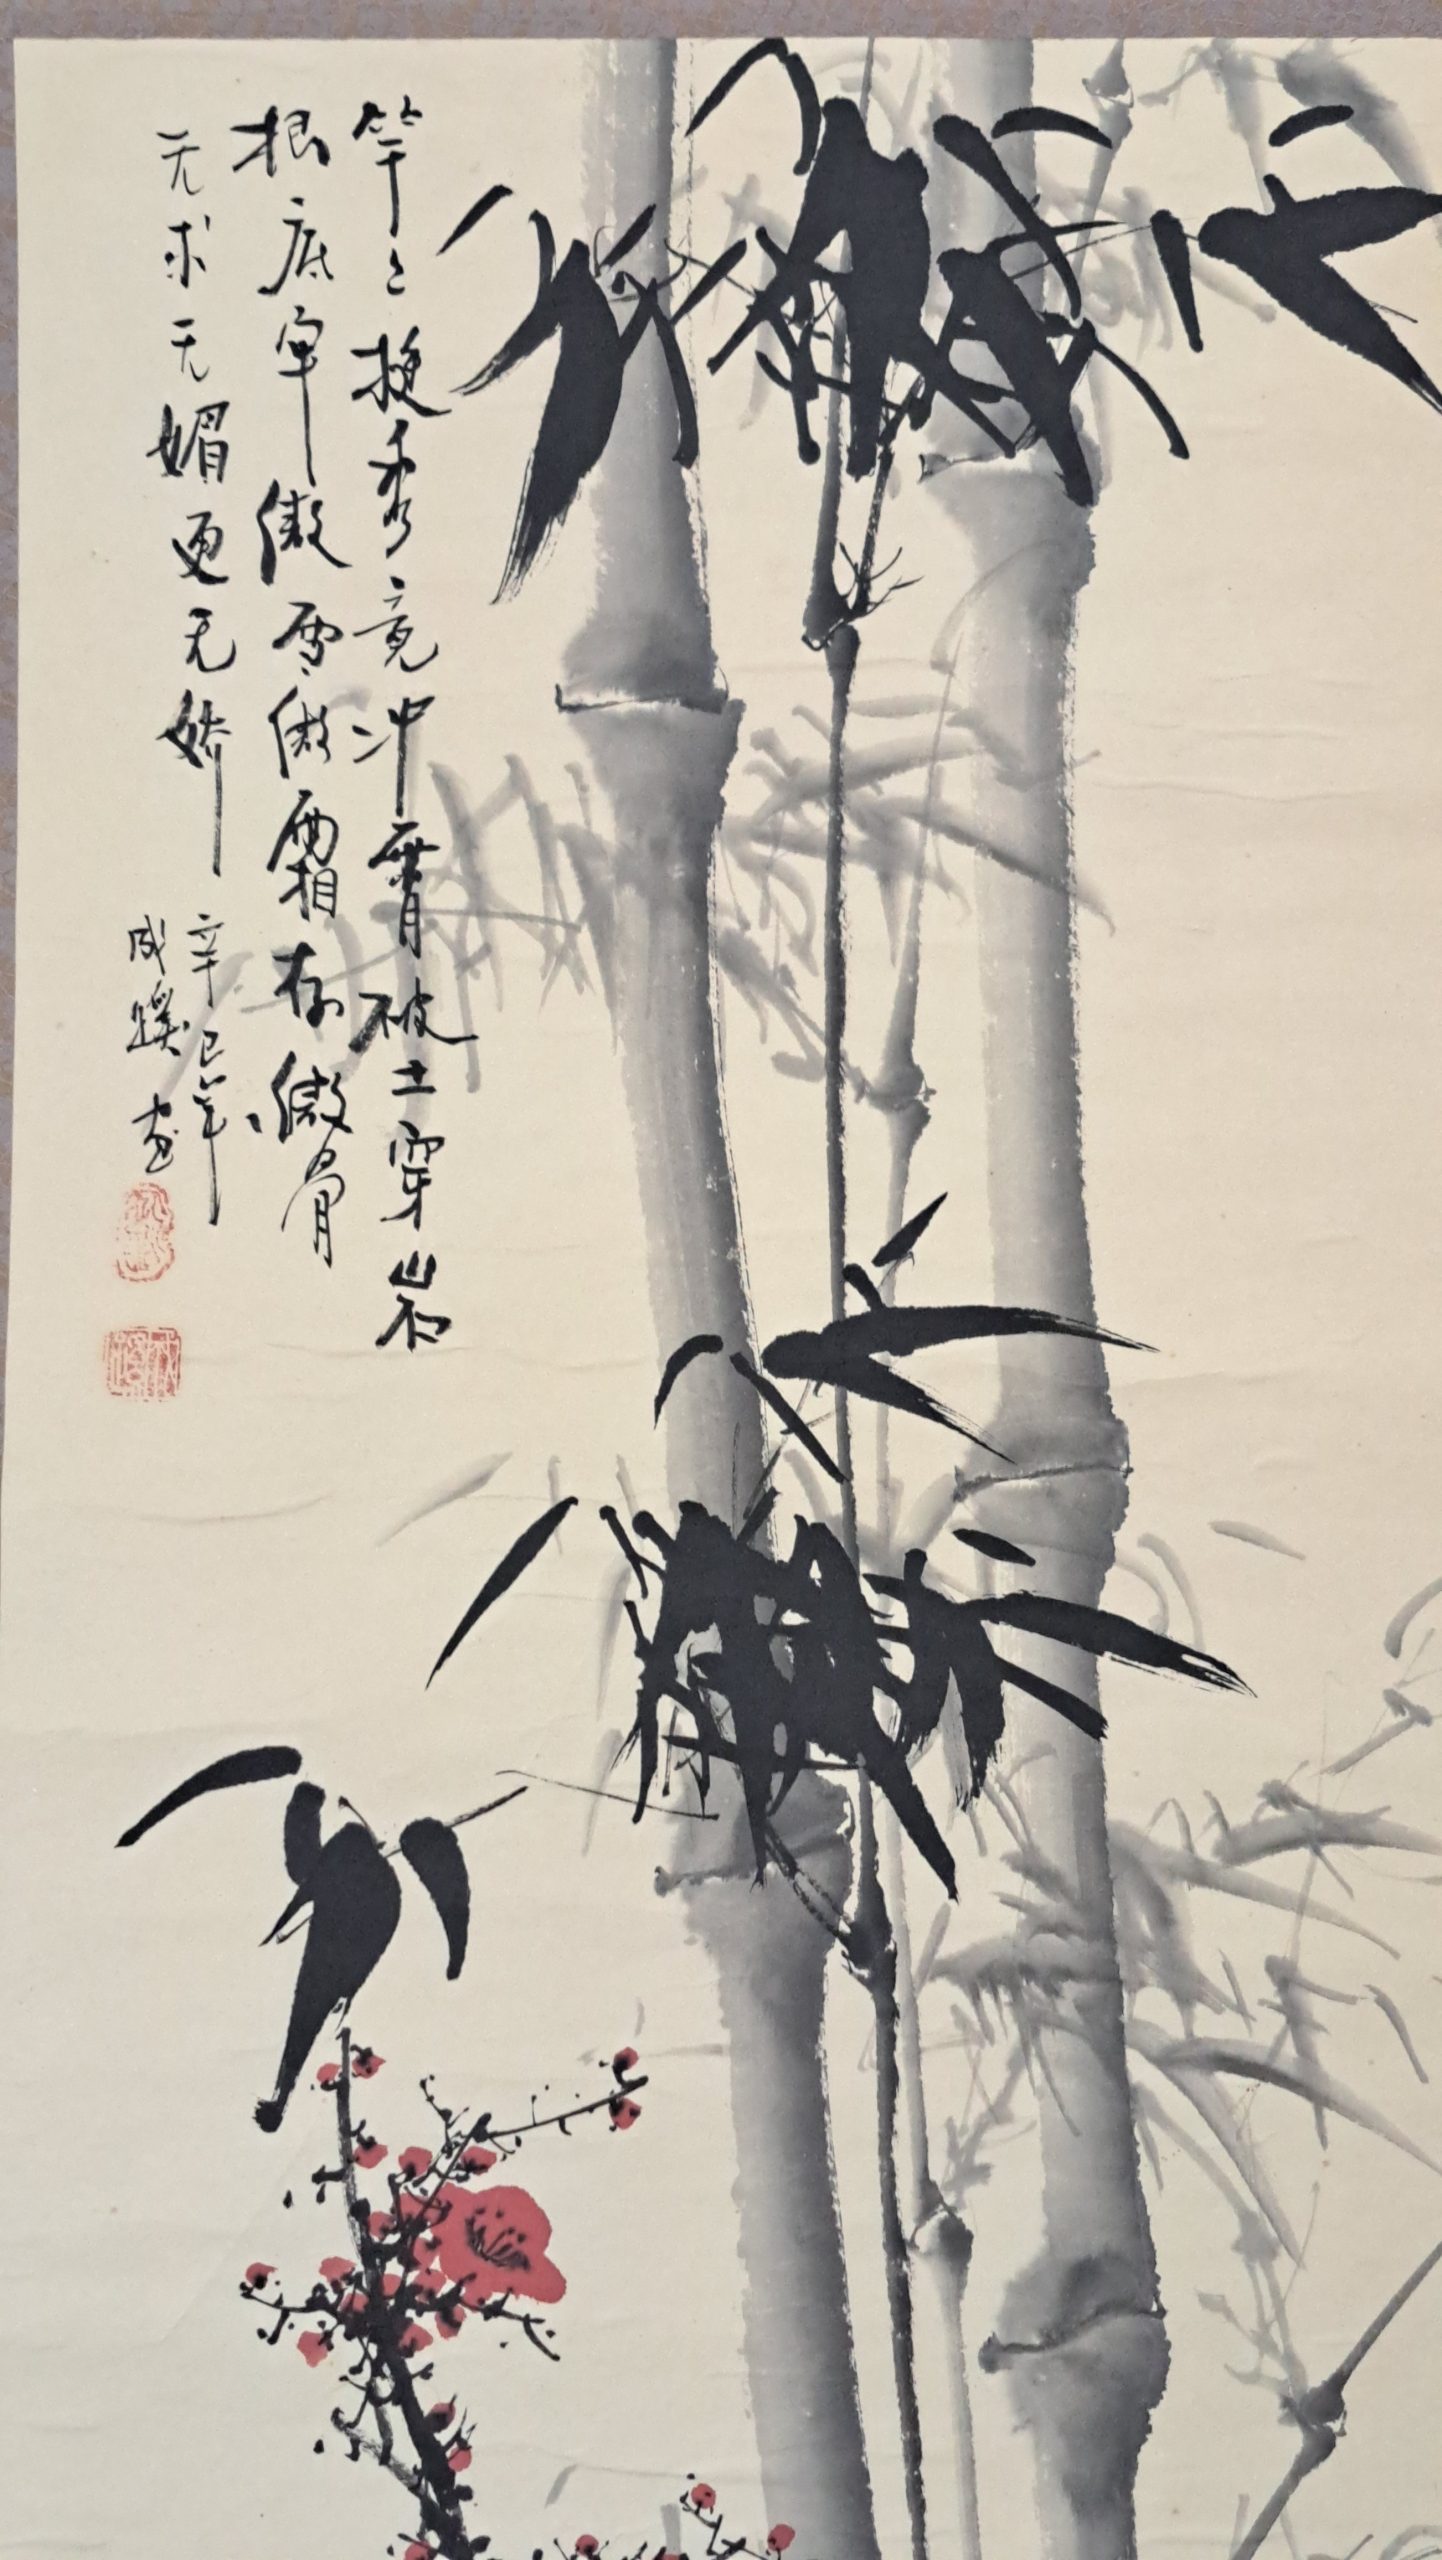 竿〻挺秀竞冲霄破土穿岩
根底牢傲雪傲霜存傲骨
无求无媚更无娇
辛巳年
成蹊画